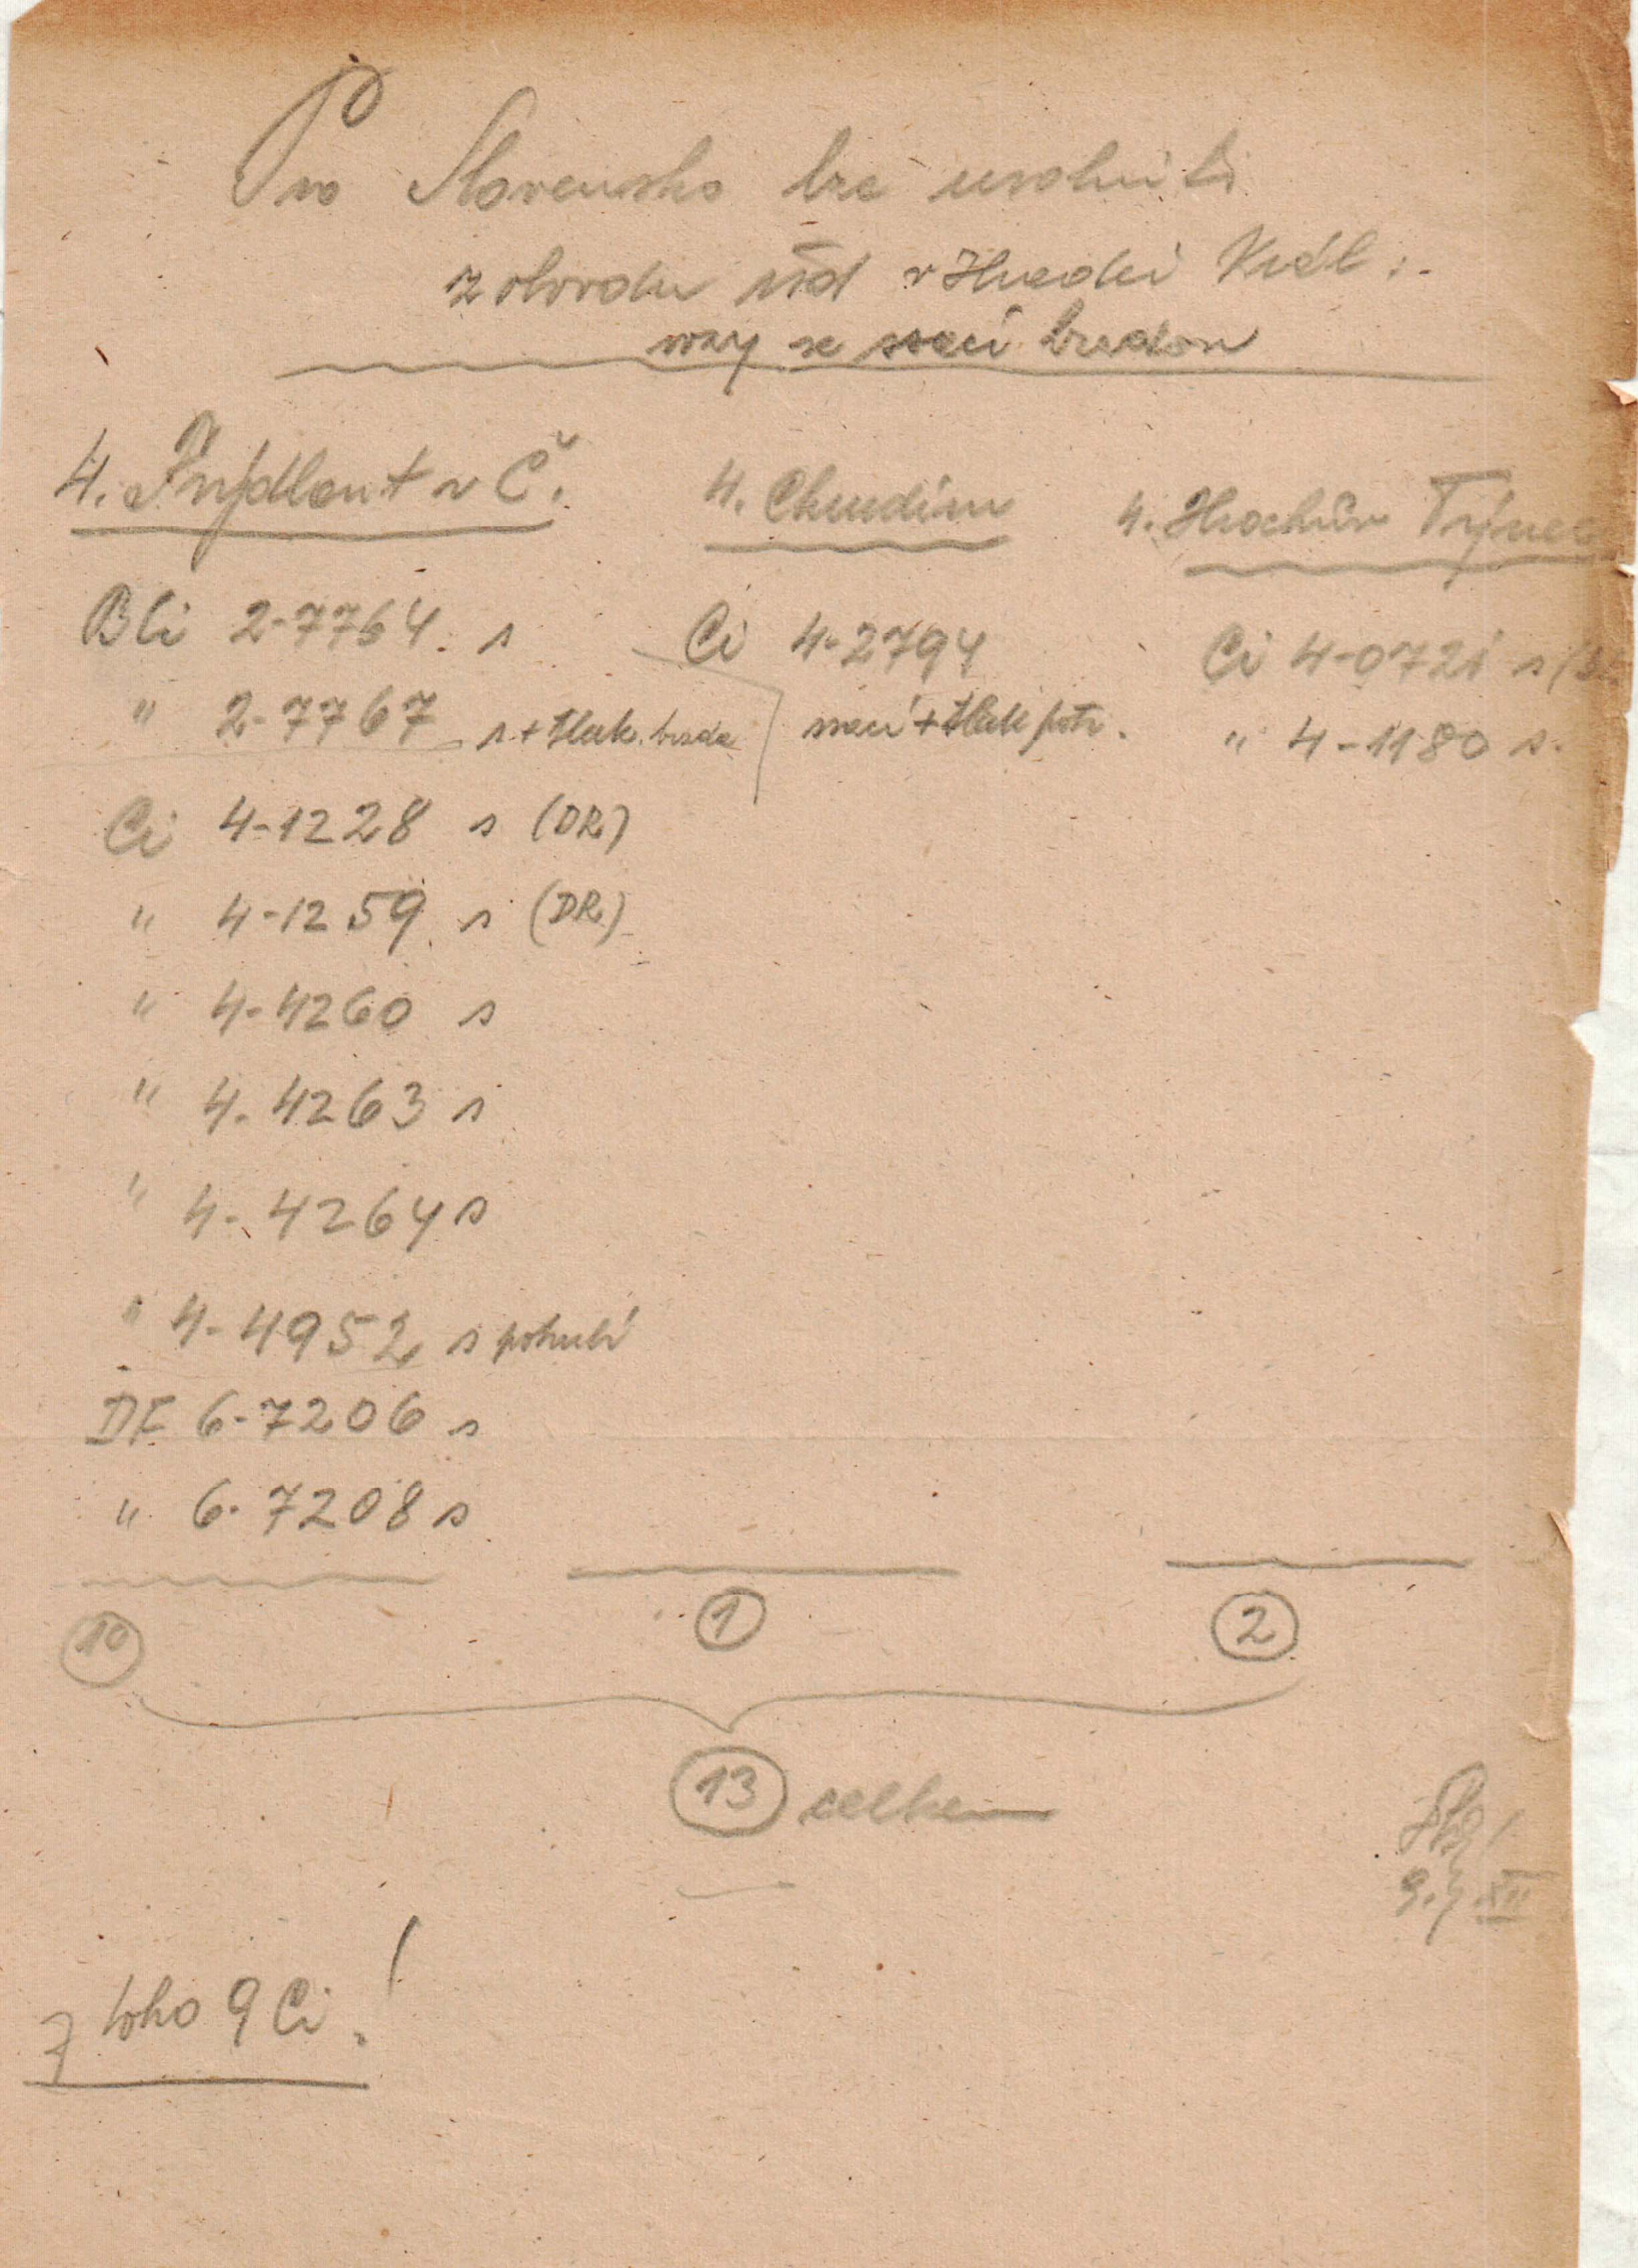 Pro Slovensko lze uvolniti
z obvodu řsd v Hradci Král:.
vozy se ssací brzdou
4. Frýdlant v Č.
Bli 2-7764. s
" 2-7767 s + tlak. brzda
Ci 4-1228 s (DR)
" 4-1259 s (DR)
" 4-4260 s
" 4-4263 s
" 4-4264 s
" 4-4952 s potrubí
DF 6-7206 s
" 6-7208 s
10
4. Chrudim
Ci 4-2794
ssací + tlak potr.
1
4. Hrochův Týnec
Ci 4-0721 s
" 4-1180 s.
2
13 celkem
z toho 9 Ci!